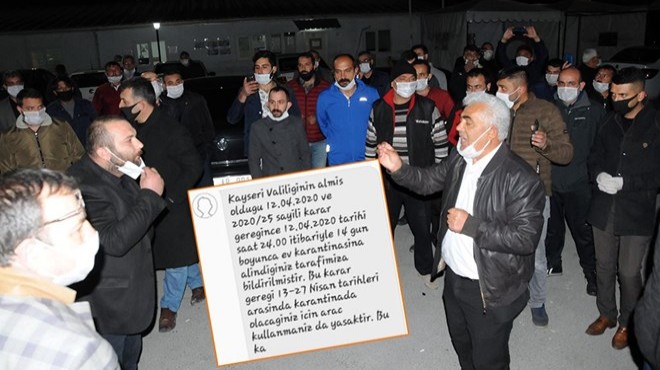 Kayseri Valiliginin almis
oldugu 12.04.2020 ve
2020/25 sayili karar
geregince 12.04.2020 tarihi
saat 24.00 itibariyle 14 gun
boyunca ev karantinasina
alindiginiz tarafimiza
bildirilmistir. Bu karar
geregi 13-27 Nisan tarihleri
arasinda karantinada
olacaginiz icin arac
kullanmaniz da yasaktir. Bu
ka